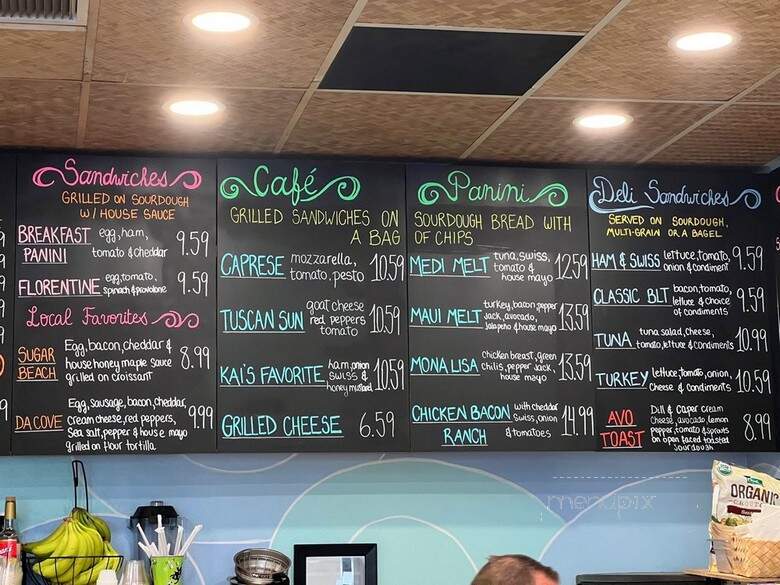 Sandwiches
GRILLED ON SOURDOUGH
W/ HOUSE SAUCE
BREAKFAST PANINI egg, ham, tomato & cheddar 9.59
FLORENTINE egg, tomato, spinach & provolone 9.59
Local Favorites
SUGAR BEACH Egg, bacon, cheddar & house honey maple sauce grilled on croissant 8.99
DA COVE Egg, sausage, bacon, cheddar, cream cheese, red peppers, sea salt, pepper & house mayo grilled on flour tortilla 9.99
Café
GRILLED SANDWICHES ON
A BAG
CAPRESE mozzarella, tomato, pesto 10.59
TUSCAN SUN goat cheese red peppers tomato 10.59
KAI'S FAVORITE ham, onion swiss & honey mustard 10.59
GRILLED CHEESE 6.59
Panini
SOURDOUGH BREAD WITH
OF CHIPS
MEDI MELT tuna, swiss, tomato & house mayo 12.59
MAUI MELT turkey, bacon, pepper jack, avocado, jalapeño & house mayo 13.59
MONA LISA chicken breast, green chilis, pepper jack, house mayo 13.59
CHICKEN BACON RANCH with cheddar swiss, onion & tomatoes 14.99
Deli Sandwiches
SERVED ON SOURDOUGH,
MULTI-GRAIN OR A BAGEL
HAM & SWISS lettuce, tomato, onion & condiment 9.59
CLASSIC BLT bacon, tomato, lettuce & choice of condiments 9.59
TUNA tuna salad, cheese, tomato, lettuce & condiments 10.99
TURKEY lettuce, tomato, onion, cheese & condiments 10.59
AVO TOAST Dill & Caper cream cheese, avocado, lemon pepper, tomato & sprouts on open faced toasted sourdough 8.99
ORGANIC
menupix